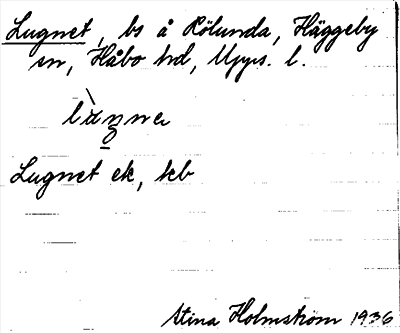 Lugnet, bs å Rölunda, Häggeby
sn, Håbo hd, Upps. l.
Lugnet ek, kb
Stina Holmström 1936